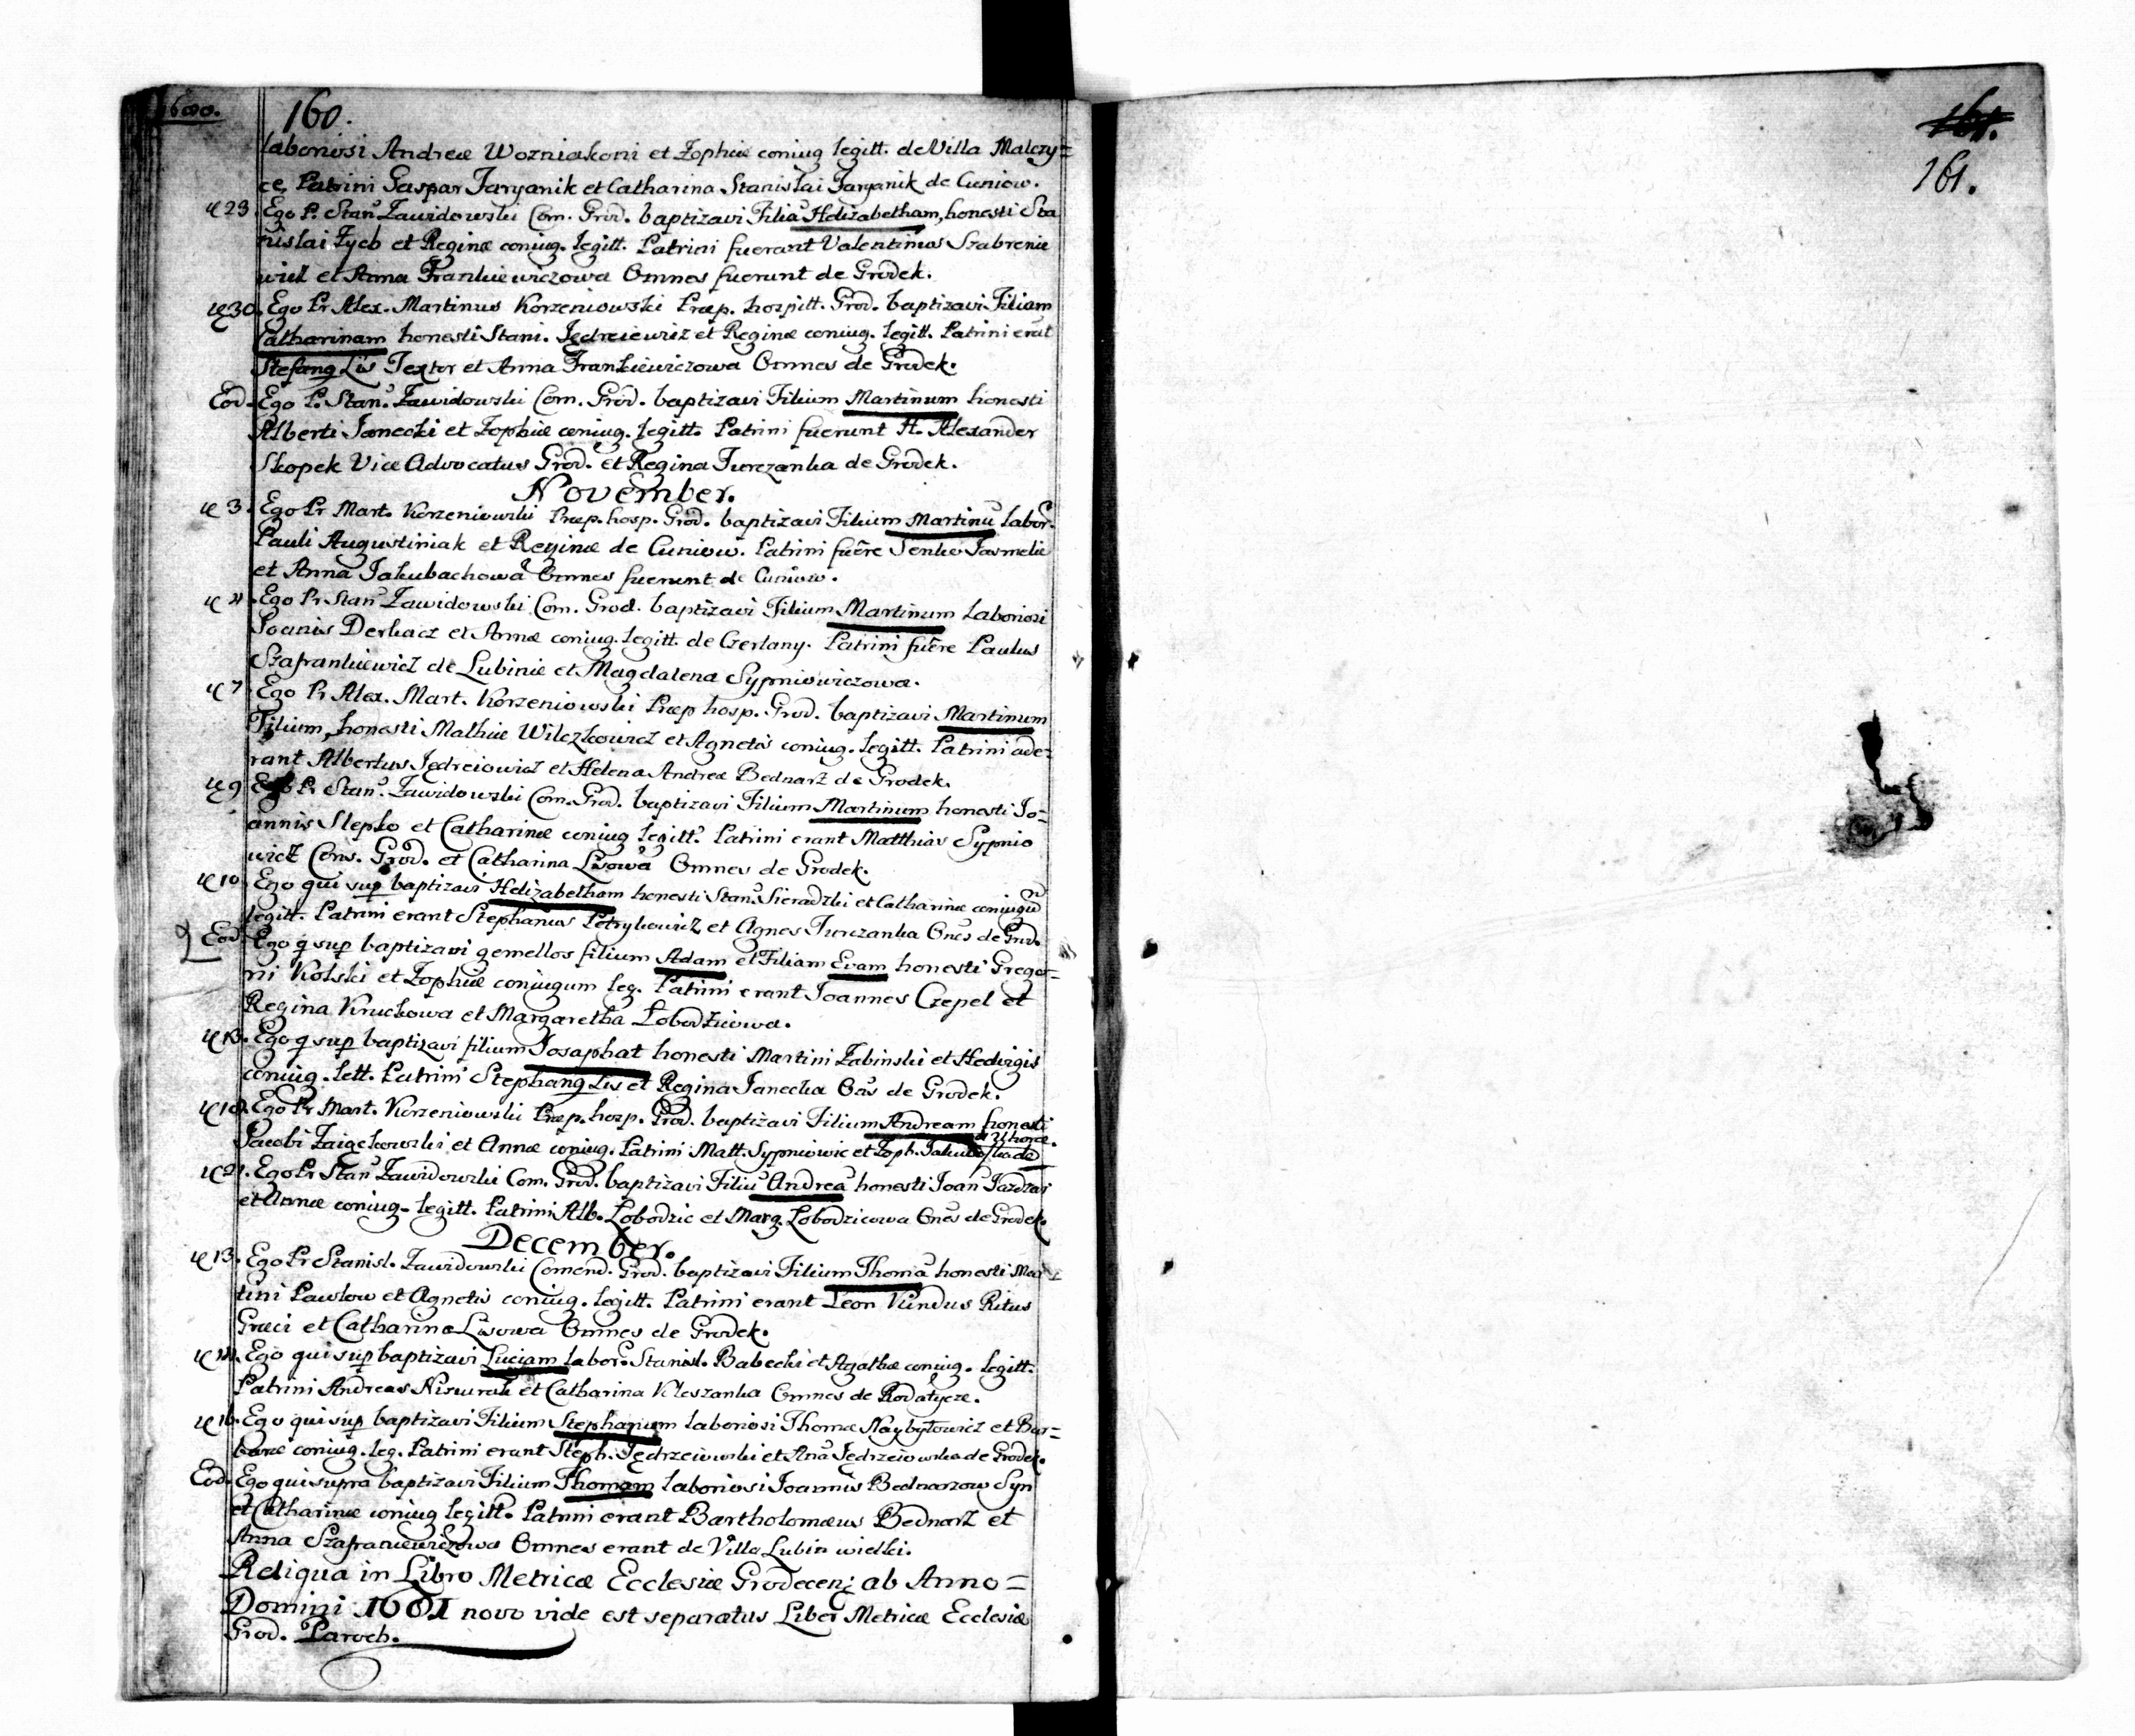 1680.
160.
laboriosi Andreæ Wozniakoni et Zophiæ coniug legitt. de Villa Malczy=
ce, Patrini Gaspar Jaryanik et Catharina Stanislai Jaryanik de Cuniow.
23. Ego P. Stan. Zawidowski Com. Grod. baptizavi Filiã Helizabetham, honesti Sta
nislai Zyeb et Reginæ coniug. legitt. Patrini fuerant Valentinus Szabrenie
wicz et Anna Frankiewiczowa Omnes fuerunt de Grodek.
30. Ego Pr Alex. Martinus Korzeniowski Præp. hospitt. Grod. baptizavi Filiam
Catharinam honesti Stani. Jędreiewicz et Reginæ coniug. legitt. Patrini erãt
Stefanq Lis Textor et Anna Frankiewiczowa Omnes de Grodek.
Eod. Ego P. Stan. Zawidowski Com. Grod. baptizavi Filium Martinum honesti
Alberti Janecki et Zophiæ coniug. legitt. Patrini fuerunt H. Alexander
Skopek Vice Advocatus Grod. et Regina Turczanka de Grodek.
November.
3. Ego Pr Mart. Korzeniowski Præp. hosp. Grod. baptizavi Filium Martinũ labor.
Pauli Augustiniak et Reginæ de Cuniow. Patrini fuêre Senko Jarmelie
et Anna Jakubachowa Omnes fuerunt de Cuniow.
Ego Pr Stan Zawidowski Com. Grod. baptizavi Filium Martinum Laboriosi
Joanis Derkacz et Annæ coniug. legitt. de Czerlany. Patrini fuêre Paulus
Szafrankiewicz de Lubinie et Magdalena Sypniowiczowa.
7. Ego Pr Alex. Mart. Korzeniowski Præp hosp. Grod. baptizavi Martinum
Filium, honesti Mathiæ Wilczkowicz et Agnetis coniug. legitt. Patrini ade=
rant Albertus Jędreiowicz et Helena Andreæ Bednarz de Grodek.
9. Ego Pr Stan. Zawidowski Com. Grod. baptizavi Filium Martinum honesti Jo=
annis Slepko et Catharinæ coniug legitt. Patrini erant Matthias Sypnio
wicz Cons. Grod. et Catharina Lisowa Omnes de Grodek.
10. Ego qui sup baptizavi Helizabetham honesti Stan. Sieradzki et Catharinæ coniugũ
legitt. Patrini erant Stephanus Petrykowicz et Agnes Turczanka Oñes de Grod.
Eod. Ego q sup baptizavi gemellos filium Adam et Filiam Evam honesti Grego=
rii Kolski et Zophiæ coniugum leg. Patrini erant Joannes Czepel et
Regina Kruckowa et Margaretha Lobodziowa.
13. Ego q sup baptizavi filium Josaphat honesti Martini Zabinski et Hedvigis
coniug. lett. Patrini Stephanq Lis et Regina Janecka Oñs de Grodek.
18. Ego Pr Mart. Korzeniowski Præp. hosp. Grod. baptizavi Filium Andream honesti
Jacobi Zaigckowski et Annæ coniug. Patrini Matt. Sypniowic et Zoph.
21. Ego Pr Stan Zawidowski Com. Grod. baptizavi Filiũ Andreã honesti Joan Jazdzai
et Annæ coniug. legitt. Patrini Alb. Lobodzic et Marg. Lobodzicowa Oñes de Grodek.
December.
13. Ego Pr Stanisl. Zawidowski Comend. Grod. baptizavi Filium Thomã honesti Mar
tini Pawlow et Agnetis coniug. legitt. Patrini erant Leon Kundus Ritus
Græci et Catharina Lisowa Omnes de Grodek.
Ego qui sup baptizavi Luciam labor. Stanisl. Babecki et Agathæ coniug. legitt.
Patrini Andreas et Catharina Kleszanka Omnes de Rodatycze.
16. Ego qui sup baptizavi Filium Stephanum laboriosi Thomæ Naybytowicz et Bar=
baræ coniug. leg. Patrini erant Steph. Jędrzeiowski et Anã Jędrzeiowska de Grodek.
Eod. Ego qui supra baptizavi Filium Thomam laboriosi Joannis Bednarzow Syn
et Catharinæ coniug legitt. Patrini erant Bartholomæus Bednarz et
Anna Szafraniewiczowa Omnes erant de Villa Lubin wielki.
Reliqua in Libro Metricæ Ecclesiæ Grodecenz ab Anno=
Domini 1681 novo vide est separatus Liber Metricæ Ecclesiæ
Grod. Paroch.
161.
161.